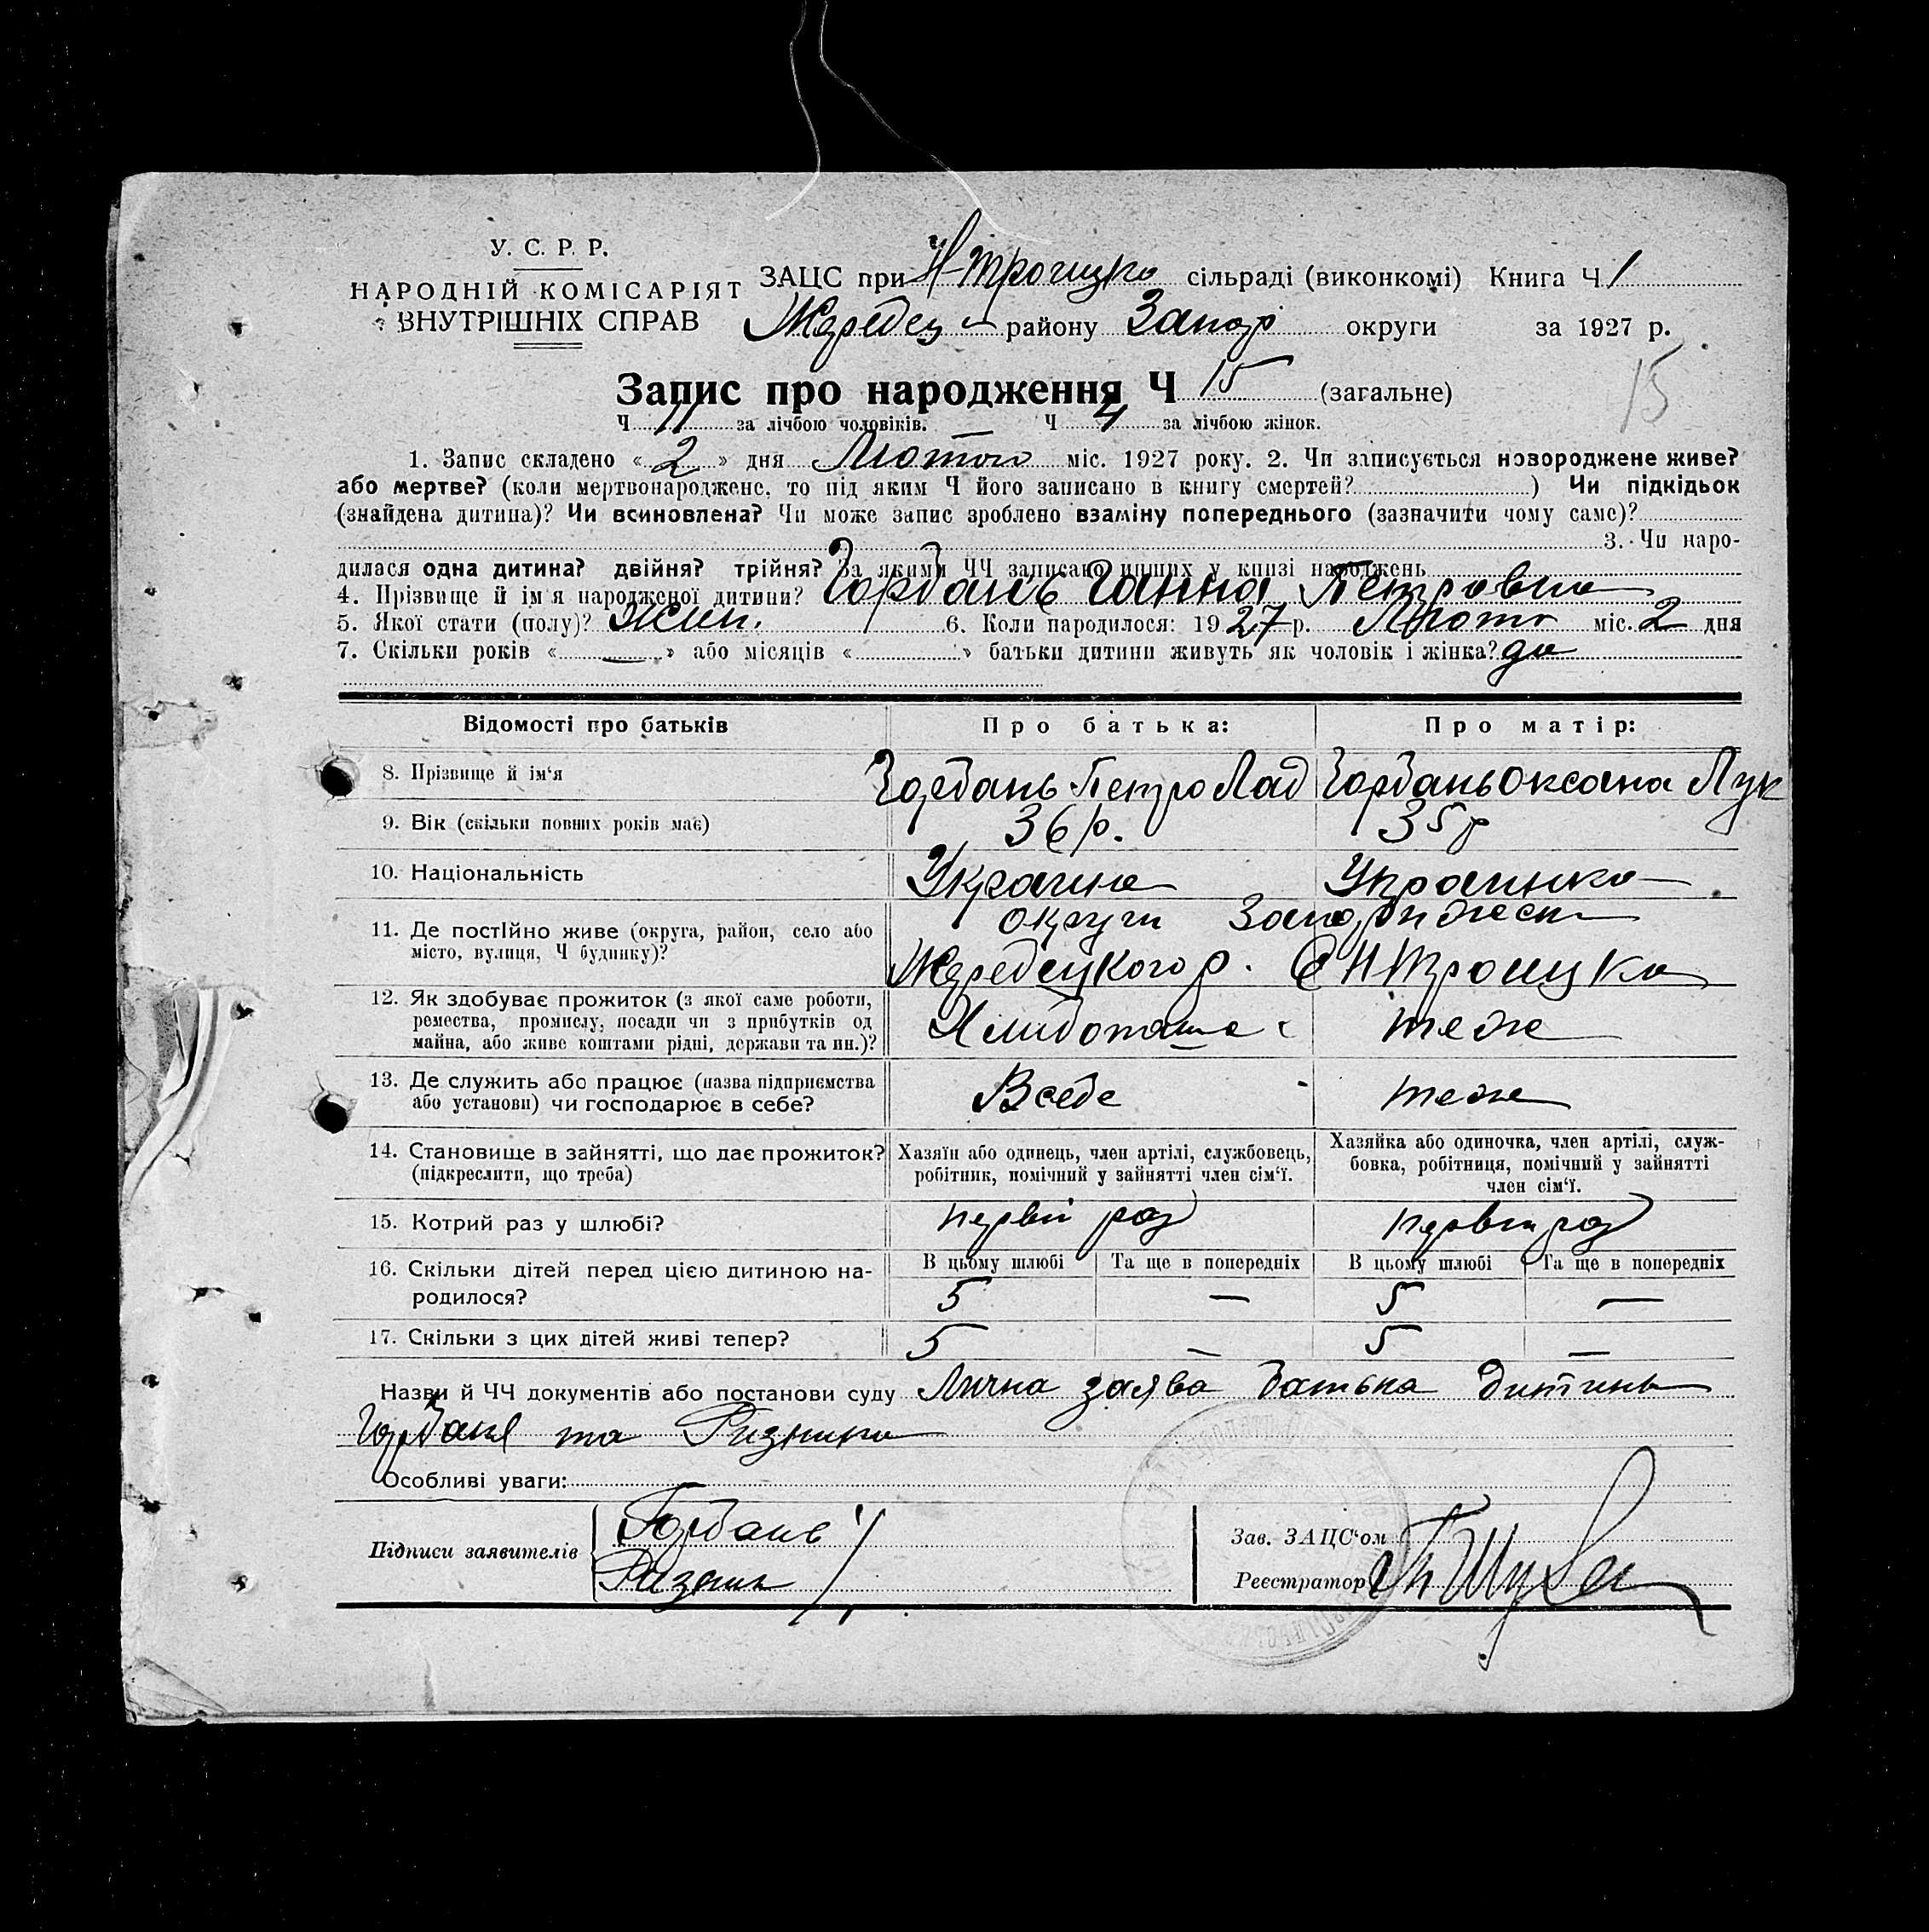 У. С. Р. Р.
НАРОДНІЙ КОМІСАРІЯТ
ВНУТРІШНІХ СПРАВ
ЗАЦС при Н-Троицко сільраді (виконкомі) Книга Ч 1
Жеребец району Запор округи за 1927 р.
15
Запис про народження Ч 15 (загальне)
Ч 11 за лічбою чоловіків. Ч 4 за лічбою жінок.
1. Запис складено « 2 » дня Лютого міс. 1927 року. 2. Чи записується новороджене живе?
або мертве? (коли мертвонароджене, то під яким Ч його записано в книгу смертей? ) Чи підкідьок
(знайдена дитина)? Чи всиновлена? Чи може запис зроблено взаміну попереднього (зазначити чому саме)?
3. Чи наро-
дилася одна дитина? двійня? трійня? За якими ЧЧ записано инших у книзі народжень
4. Прізвище й ім'я народженої дитини? Горбань Ганна Петровна
5. Якої стати (полу)? жин. 6. Коли народилося: 1927 р. Лютого міс. 2 дня
7. Скільки років « — » або місяців « » батьки дитини живуть як чоловік і жінка? да
Відомості про батьків Про батька: Про матір:
8. Прізвище й ім'я Горбань Петро Лад Горбань Оксана Лук
9. Вік (скільки повних років має) 36 р. 35 р
10. Національність Украине Украинка
11. Де постійно живе (округа, район, село або
місто, вулиця, Ч будинку)?
округи
Жеребецкого р. С Н Троицка
12. Як здобуває прожиток (з якої саме роботи,
ремества, промислу, посади чи з прибутків од
майна, або живе коштами рідні, держави та ин.)?
теж
13. Де служить або працює (назва підприємства
або установи) чи господарює в себе?
Всебе теж
14. Становище в зайнятті, що дає прожиток?
(підкреслити, що треба)
Хазяїн або одинець, член артілі, службовець,
робітник, помічний у зайнятті член сім'ї.
Хазяйка або одиночка, член артілі, служ-
бовка, робітниця, помічний у зайнятті
член сім'ї.
15. Котрий раз у шлюбі? перви раз перви раз
16. Скільки дітей перед цією дитиною на-
родилося?
В цьому шлюбі Та ще в попередніх В цьому шлюбі Та ще в попередніх
5 — 5 —
17. Скільки з цих дітей живі тепер? 5 — 5 —
Назви й ЧЧ документів або постанови суду Лична заява батька дитини
Горбаня та
Особливі уваги:
Підписи заявителів Горбань
Зав. ЗАЦС'ом
Реєстратор